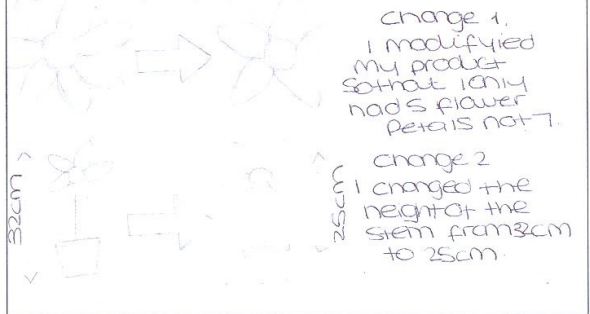 Change 1.
I modifyied
my product
So that I only
had 5 flower
Petals not 7.
32cm
25cm
Change 2
I changed the
height of the
Stem from 32cm
to 25cm.